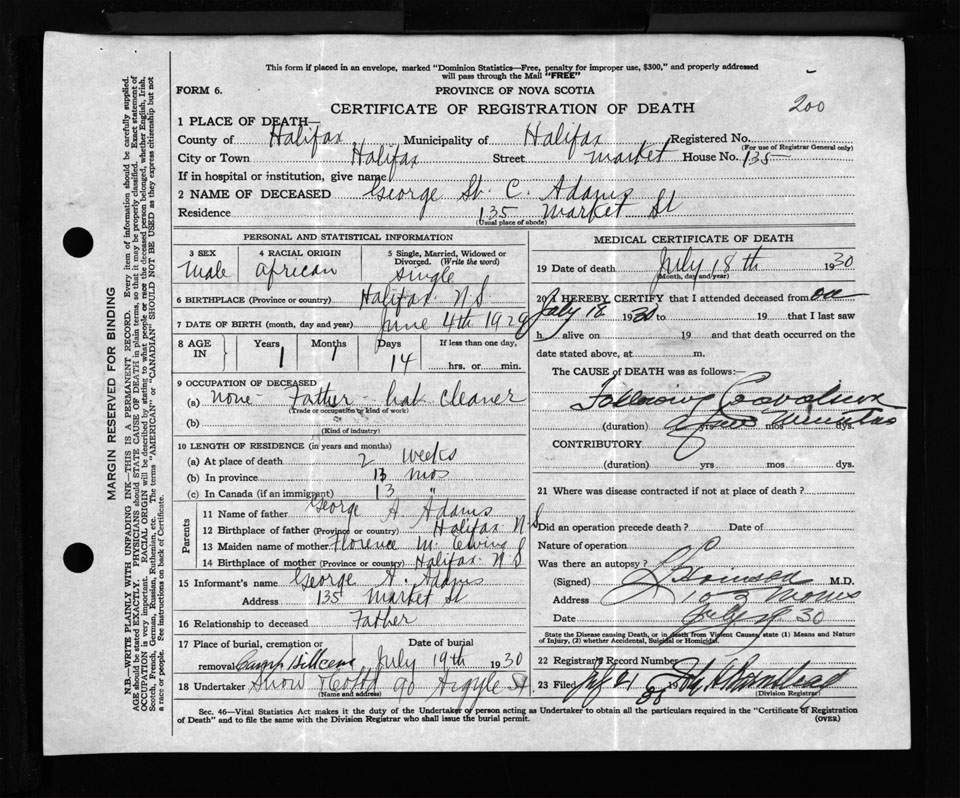 This form if placed in an envelope, marked "Dominion Statistics—Free, penalty for improper use, $300," and properly addressed
will pass through the Mail "FREE"
FORM 6. PROVINCE OF NOVA SCOTIA
200
CERTIFICATE OF REGISTRATION OF DEATH
1 PLACE OF DEATH—
County of Halifax Municipality of Halifax Registered No.
(For use of Registrar General only)
City or Town Halifax Street Market House No. 135
If in hospital or institution, give name
2 NAME OF DECEASED George St. C. Adams
Residence 135 Market St
(Usual place of abode)
PERSONAL AND STATISTICAL INFORMATION
3 SEX 4 RACIAL ORIGIN 5 Single, Married, Widowed or Divorced. (Write the word)
Male African Single
6 BIRTHPLACE (Province or country) Halifax N.S
7 DATE OF BIRTH (month, day and year) June 4th 1929
8 AGE IN Years Months Days If less than one day,
1 1 14 hrs. or min.
9 OCCUPATION OF DECEASED
(a) none - Father - hat cleaner
(Trade or occupation or kind of work)
(b)
(Kind of industry)
10 LENGTH OF RESIDENCE (in years and months)
(a) At place of death 2 weeks
(b) In province 13 mos
(c) In Canada (if an immigrant) 13 "
Parents
11 Name of father George A. Adams
12 Birthplace of father (Province or country) Halifax N.S
13 Maiden name of mother Florence M.
14 Birthplace of mother (Province or country) Halifax N S
15 Informant's name George A. Adams
Address 135 Market St
16 Relationship to deceased Father
17 Place of burial, cremation or Date of burial
removal Camp Hill July 19th 1930
18 Undertaker Snow 90 Argyle St
MEDICAL CERTIFICATE OF DEATH
19 Date of death July 18th 1930
(Month, day and year)
20 I HEREBY CERTIFY that I attended deceased from on
July 18 1930 to 19 that I last saw
h alive on 19 and that death occurred on the
date stated above, at m.
The CAUSE OF DEATH was as follows:
Following
(duration) yrs mos dys.
CONTRIBUTORY
(duration) yrs mos. dys.
21 Where was disease contracted if not at place of death?
Did an operation precede death? Date of
Nature of operation
Was there an autopsy?
(Signed) M.D.
Address 103 Morris
Date July 30
State the Disease causing Death, or in death from Violent Causes, state (1) Means and Nature
of Injury, (2) whether Accidental, Suicidal or Homicidal.
22 Registrar's Record Number
23 Filed July 21 30
(Division Registrar)
Sec. 46—Vital Statistics Act makes it the duty of the Undertaker or person acting as Undertaker to obtain all the particulars required in the "Certificate of Registration
of Death" and to file the same with the Division Registrar who shall issue the burial permit.
(OVER)
MARGIN RESERVED FOR BINDING
N.B.—WRITE PLAINLY WITH UNFADING INK—THIS IS A PERMANENT RECORD. Every item of information should be carefully supplied.
AGE should be stated EXACTLY. PHYSICIANS should STATE CAUSE OF DEATH in plain terms, so that it may be properly classified. Exact statement of
OCCUPATION is very important. RACIAL ORIGIN will be described by stating to what people or race the deceased person belonged, whether English, Irish,
Scotch, French, German, Russian, Ruthenian, etc. The terms "AMERICAN" or "CANADIAN" SHOULD NOT BE USED as they express citizenship but not
a race or people. See instructions on back of Certificate.